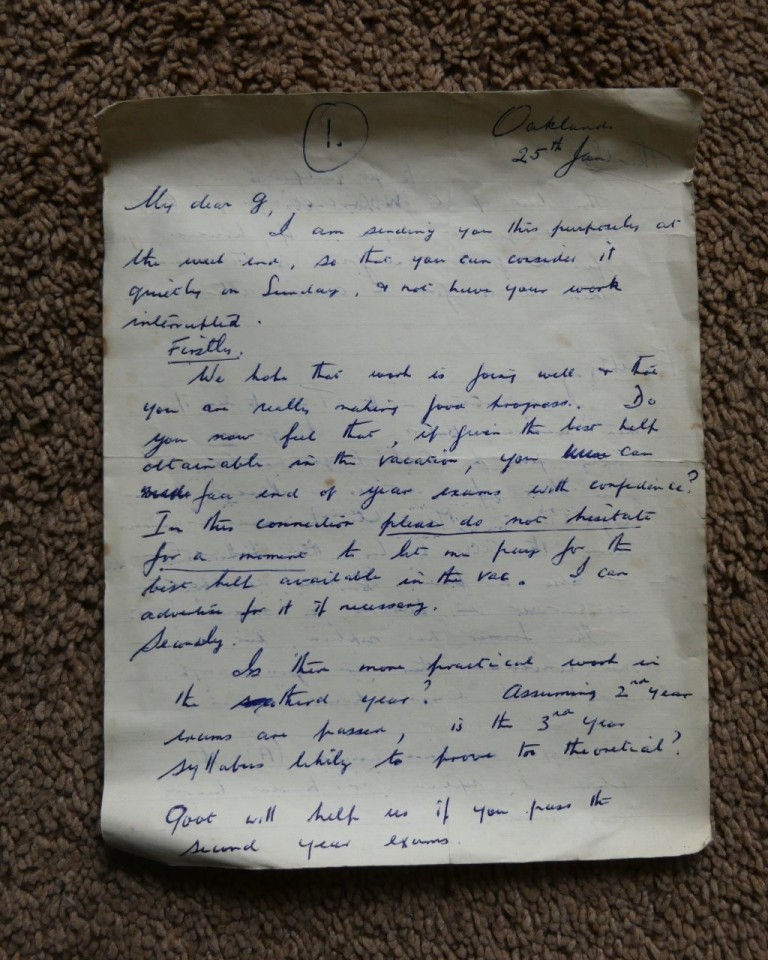 1.
Oaklands
25th Jan
My dear G,
I am sending you this purposely at
the week end, so that you can consider it
quietly on Sunday, & not have your work
interrupted.
Firstly.
We hope that work is going well & that
you are really making good progress. Do
you now feel that, if given the best help
obtainable in the vacation, you can
face end of year exams with confidence?
In this connection please do not hesitate
for a moment to let me pay for the
best help available in the vac. I can
advertise for it if necessary.
Secondly.
Is there more practical work in
the third year? Assuming 2nd year
exams are passed, is the 3rd year
syllabus likely to prove too theoretical?
Govt will help us if you pass the
second year exams.